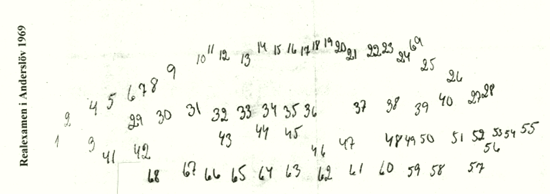 Realexamen i Anderslöv 1969
10 11 12 13 14 15 16 17 18 19 20 21 22 23 24 69
2 4 5 6 7 8 9 25 26
29 30 31 32 33 34 35 36 37 38 39 40 27 28
1 3 41 42 43 44 45 46 47 48 49 50 51 52 53 54 55
68 67 66 65 64 63 62 61 60 59 58 57 56